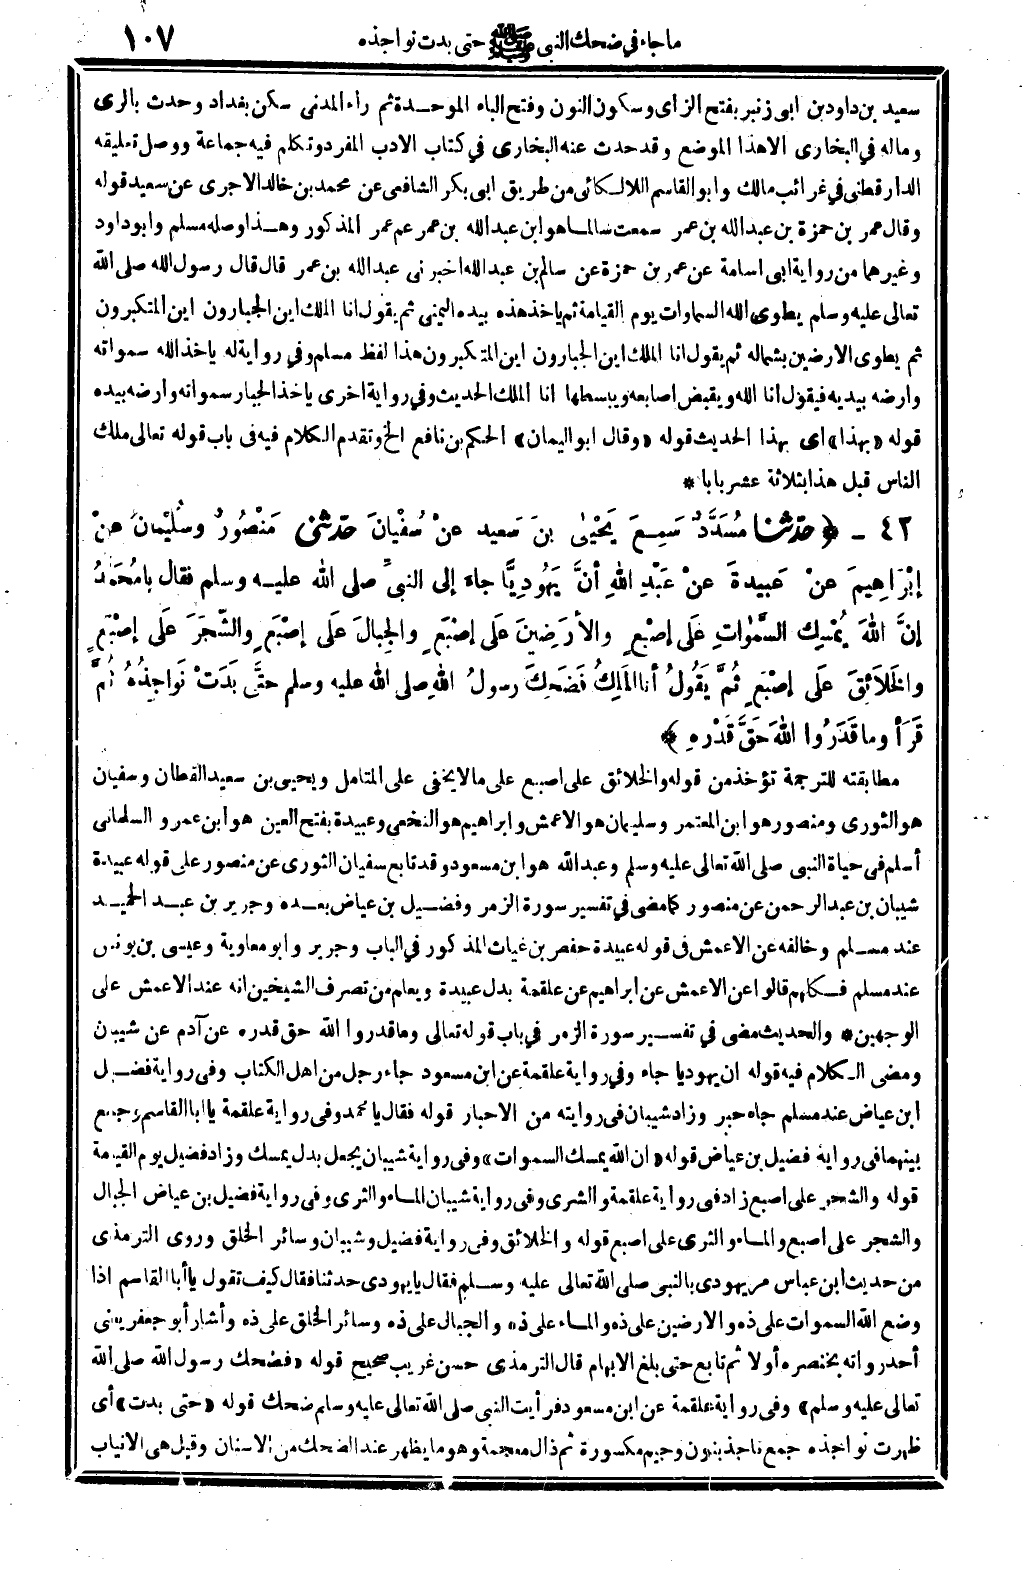 ما جاء في ضحك النبي ﷺ حتى بدت نواجذه ١٠٧
سعيد بن داود بن ابى زنبر بفتح الزاى وسكون النون وفتح الباء الموحدة ثم راء المدنى سكن بغداد وحدث بالرى
وماله في البخارى الا هذا الموضع وقد حدث عنه البخارى في كتاب الادب المفرد وتكلم فيه جماعة ووصل تعليقه
الدارقطنى في غرائب مالك وابو القاسم اللالكائى من طريق ابى بكر الشافعى عن محمد بن خالد الاجرى عن سعيد قوله
وقال عمر بن حمزة بن عبد الله بن عمر سمعت سالما هو ابن عبد الله بن عمر عم عمر المذكور وهذا وصله مسلم وابو داود
وغيرهما من رواية ابى اسامة عن عمر بن حمزة عن سالم بن عبد الله اخبرنى عبد الله بن عمر قال قال رسول الله صلى الله
تعالى عليه وسلم يطوى الله السماوات يوم القيامة ثم ياخذ هذه بيده اليمنى ثم يقول انا الملك اين الجبارون اين المتكبرون
ثم يطوى الارضين بشماله ثم يقول انا الملك اين الجبارون اين المتكبرون هذا لفظ مسلم وفي رواية له ياخذ الله سمواته
وارضه بيديه فيقول انا الله ويقبض اصابعه ويبسطها انا الملك الحديث وفي رواية اخرى ياخذ الجبار سمواته وارضه بيده
قوله «بهذا» اى بهذا الحديث قوله «وقال ابو اليمان» الحكم بن نافع الخ وتقدم الكلام فيه فى باب قوله تعالى ملك
الناس قبل هذا بثلاثة عشر بابا *
٤٢ - ﴿ حدثنا مُسَدَّدٌ سَمِعَ يَحْيَى بنَ سَعيد عنْ سُفْيانَ حدّثنى مَنْصُورٌ وسُلَيْمانُ عنْ
إبْرَاهِيمَ عنْ عَبِيدَةَ عنْ عَبْدِ اللهِ أنَّ يَهُودِيًّا جاءَ إلى النبيِّ صلى الله عليه وسلم فقال يامُحَمَّدُ
إنَّ اللهَ يُمْسِكُ السَّمٰواتِ عَلَى إصْبَعٍ والأرَضِينَ عَلَى إصْبَعٍ والجِبالَ عَلَى إصْبَعٍ والشَّجَرَ عَلَى إصْبَعٍ
والخَلَائِقَ عَلَى إصْبَعٍ ثُمَّ يَقُولُ أنا المَلِكُ فَضَحِكَ رسولُ اللهِ صلى الله عليه وسلم حتَّى بَدَتْ نَواجِذُهُ ثُمَّ
قَرَأَ وما قَدَرُوا اللهَ حَقَّ قَدْرِهِ ﴾
مطابقته للترجمة تؤخذ من قوله والخلائق على اصبع على مالا يخفى على المتامل ويحيى بن سعيد القطان وسفيان
هو الثورى ومنصور هو ابن المعتمر وسليمان هو الاعمش وابراهيم هو النخعى وعبيدة بفتح العين هو ابن عمرو السلمانى
أسلم فى حياة النبى صلى الله تعالى عليه وسلم وعبد الله هو ابن مسعود وقد تابع سفيان الثورى عن منصور على قوله عبيدة
شيبان بن عبد الرحمن عن منصور كما مضى في تفسير سورة الزمر وفضيل بن عياض بعده وجرير بن عبد الحميد
عند مسلم وخالفه عن الاعمش فى قوله عبيدة حفص بن غياث المذكور في الباب وجرير وابو معاوية وعيسى بن يونس
عند مسلم فكلهم قالوا عن الاعمش عن ابراهيم عن علقمة بدل عبيدة ويعلم من تصرف الشيخين انه عند الاعمش على
الوجهين * والحديث مضى في تفسير سورة الزمر في باب قوله تعالى وما قدروا الله حق قدره عن آدم عن شيبان
ومضى الكلام فيه قوله ان يهوديا جاء وفي رواية علقمة عن ابن مسعود جاء رجل من اهل الكتاب وفى رواية فضيل
ابن عياض عند مسلم جاء حبر وزاد شيبان فى روايته من الاحبار قوله فقال يا محمد وفى رواية علقمة يا ابا القاسم وجمع
بينهما فى رواية فضيل بن عياض قوله «ان الله يمسك السموات» وفى رواية شيبان يجعل بدل يمسك وزاد فضيل يوم القيمة
قوله والشجر على اصبع زاد فى رواية علقمة والشرى وفى رواية شيبان الماء والثرى وفى رواية فضيل بن عياض الجبال
والشجر على اصبع والماء والثرى على اصبع قوله والخلائق وفى رواية فضيل وشيبان وسائر الخلق وروى الترمذى
من حديث ابن عباس مر يهودى بالنبى صلى الله تعالى عليه وسلم فقال يا يهودى حدثنا فقال كيف تقول يا أبا القاسم اذا
وضع الله السموات على ذه والارضين على ذه والماء على ذه والجبال على ذه وسائر الخلق على ذه وأشار أبو جعفر يعنى
أحد رواته بخنصره أولا ثم تابع حتى بلغ الابهام قال الترمذى حسن غريب صحيح قوله «فضحك رسول الله صلى الله
تعالى عليه وسلم» وفى رواية علقمة عن ابن مسعود فرأيت النبى صلى الله تعالى عليه وسلم ضحك قوله «حتى بدت» أى
ظهرت نواجذه جمع ناجذ بنون وجيم مكسورة ثم ذال معجمة وهو ما يظهر عند الضحك من الاسنان وقيل هى الانياب